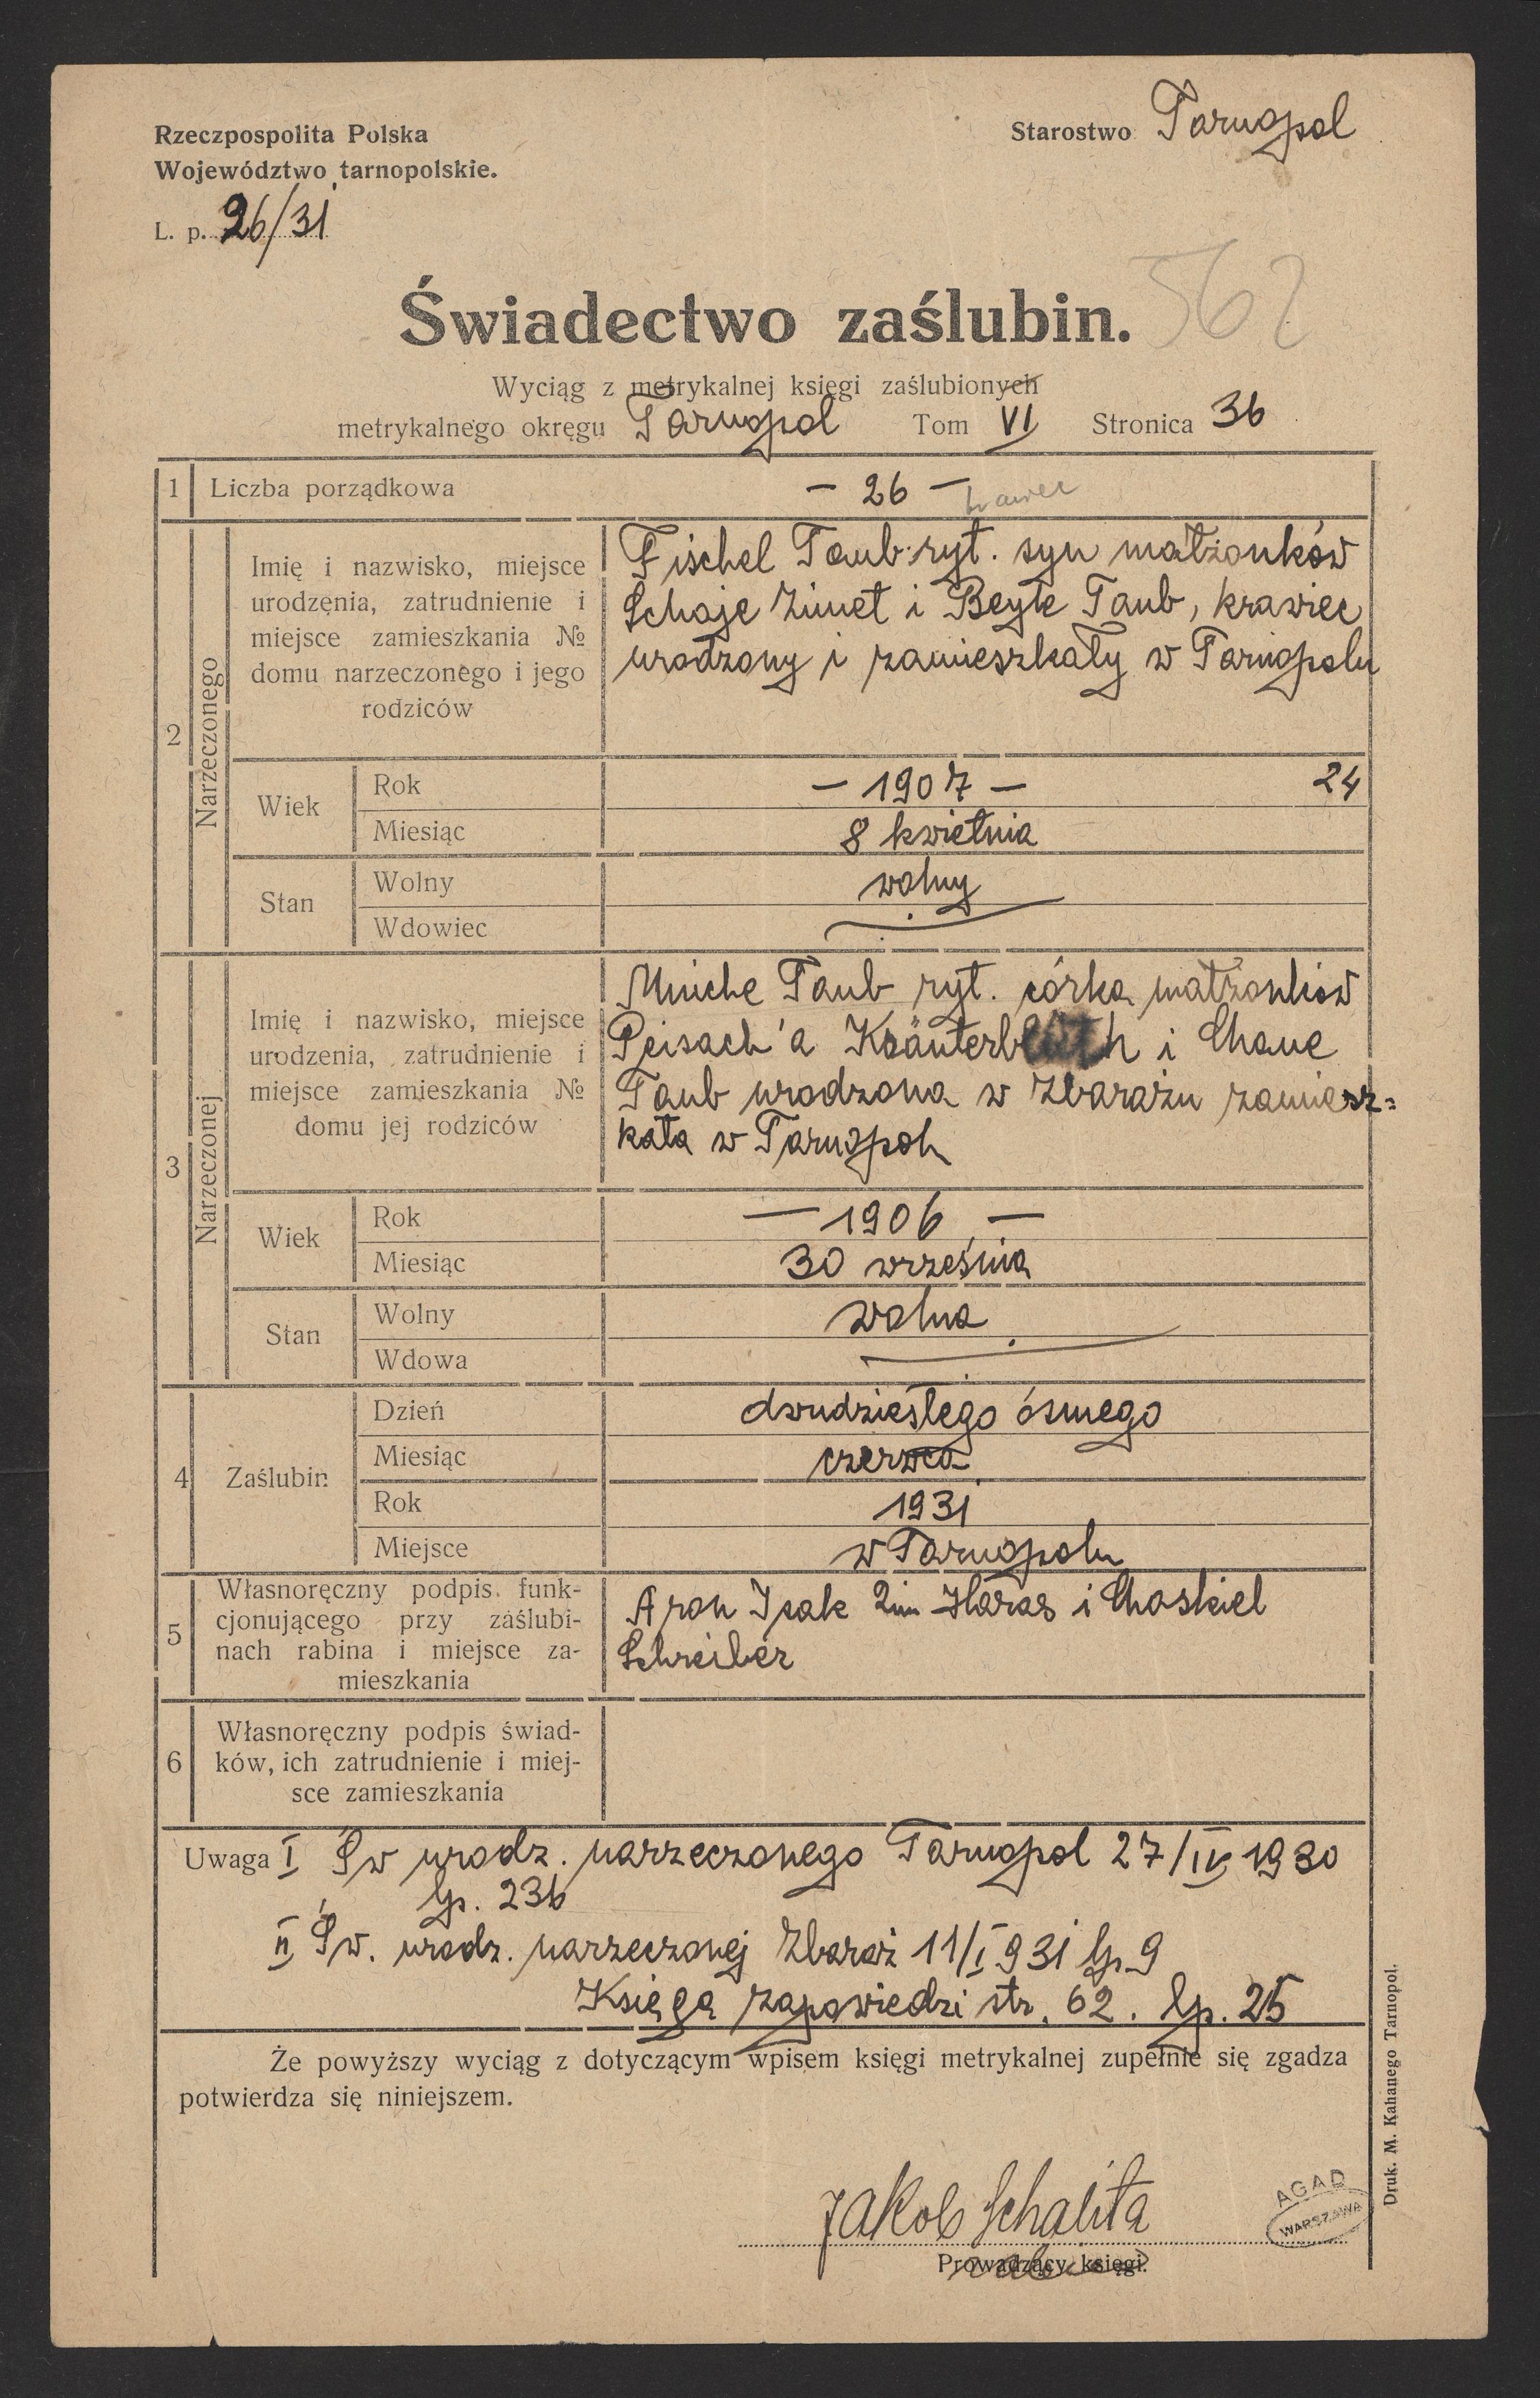 Rzeczpospolita Polska
Województwo tarnopolskie.
L. p. 26/31
Starostwo Tarnopol
562
Świadectwo zaślubin.
Wyciąg z metrykalnej księgi zaślubionych
metrykalnego okręgu Tarnopol Tom VI Stronica 36
1 Liczba porządkowa — 26 —
krawiec
2 Narzeczonego
Imię i nazwisko, miejsce
urodzenia, zatrudnienie i
miejsce zamieszkania №
domu narzeczonego i jego
rodziców
Fischel Taub ryt. syn małżonków
Schaje Zimet i Beyle Taub, krawiec
urodzony i zamieszkały w Tarnopolu
Wiek Rok — 1907 — 24
Miesiąc 8 kwietnia
Stan Wolny wolny
Wdowiec
3 Narzeczonej
Imię i nazwisko, miejsce
urodzenia, zatrudnienie i
miejsce zamieszkania №
domu jej rodziców
Miniche Taub ryt. córka małżonków
Peisach'a i Chane
Taub urodzona w Zbarażu zamiesz-
kała w Tarnopolu
Wiek Rok — 1906 —
Miesiąc 30 września
Stan Wolny wolna
Wdowa
4 Zaślubin
Dzień dwudziestego ósmego
Miesiąc czerwca
Rok 1931
Miejsce w Tarnopolu
5 Własnoręczny podpis funk-
cjonującego przy zaślubi-
nach rabina i miejsce za-
mieszkania
Aron Isak 2im Haras i Chaskiel
Schreiber
6 Własnoręczny podpis świad-
ków, ich zatrudnienie i miej-
sce zamieszkania
Uwaga I Św urodz. narzeczonego Tarnopol 27/IV 1930
lp. 236
II Św. urodz. narzeczonej Zbaraż 11/I 931 lp. 9
Księga zapowiedzi str. 62. lp. 25
Że powyższy wyciąg z dotyczącym wpisem księgi metrykalnej zupełnie się zgadza
potwierdza się niniejszem.
Jakob Schalita
Prowadzący księgi.
AGAD
WARSZAWA
Druk. M. Kahanego Tarnopol.